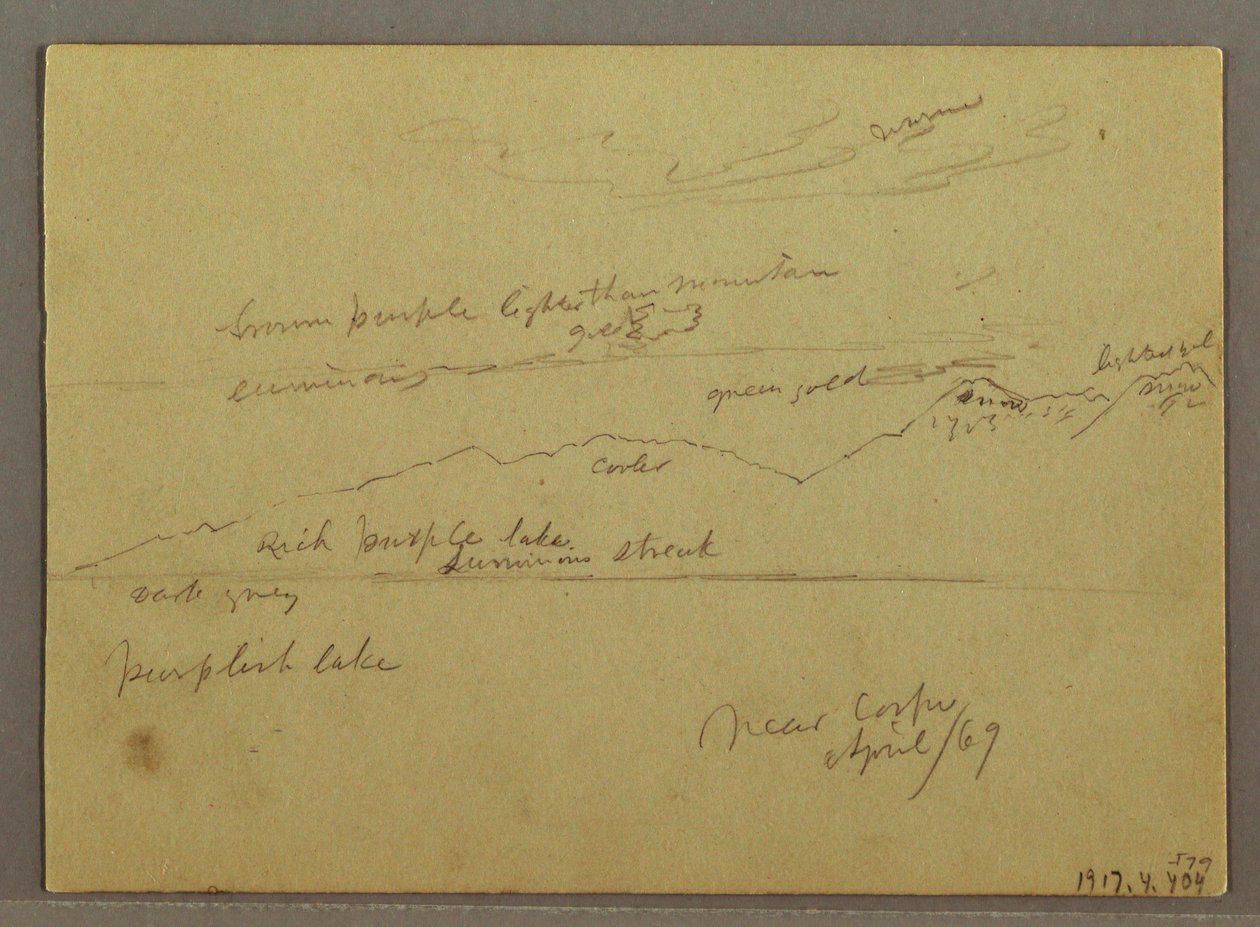 brown purple lighter than mountan
gold
luminous
green gold
snow
snow
cooler
Rich purple lake
Luminous streak
Dark grey
purplish lake
Near Corfu
April/69
I79
1917.4.404